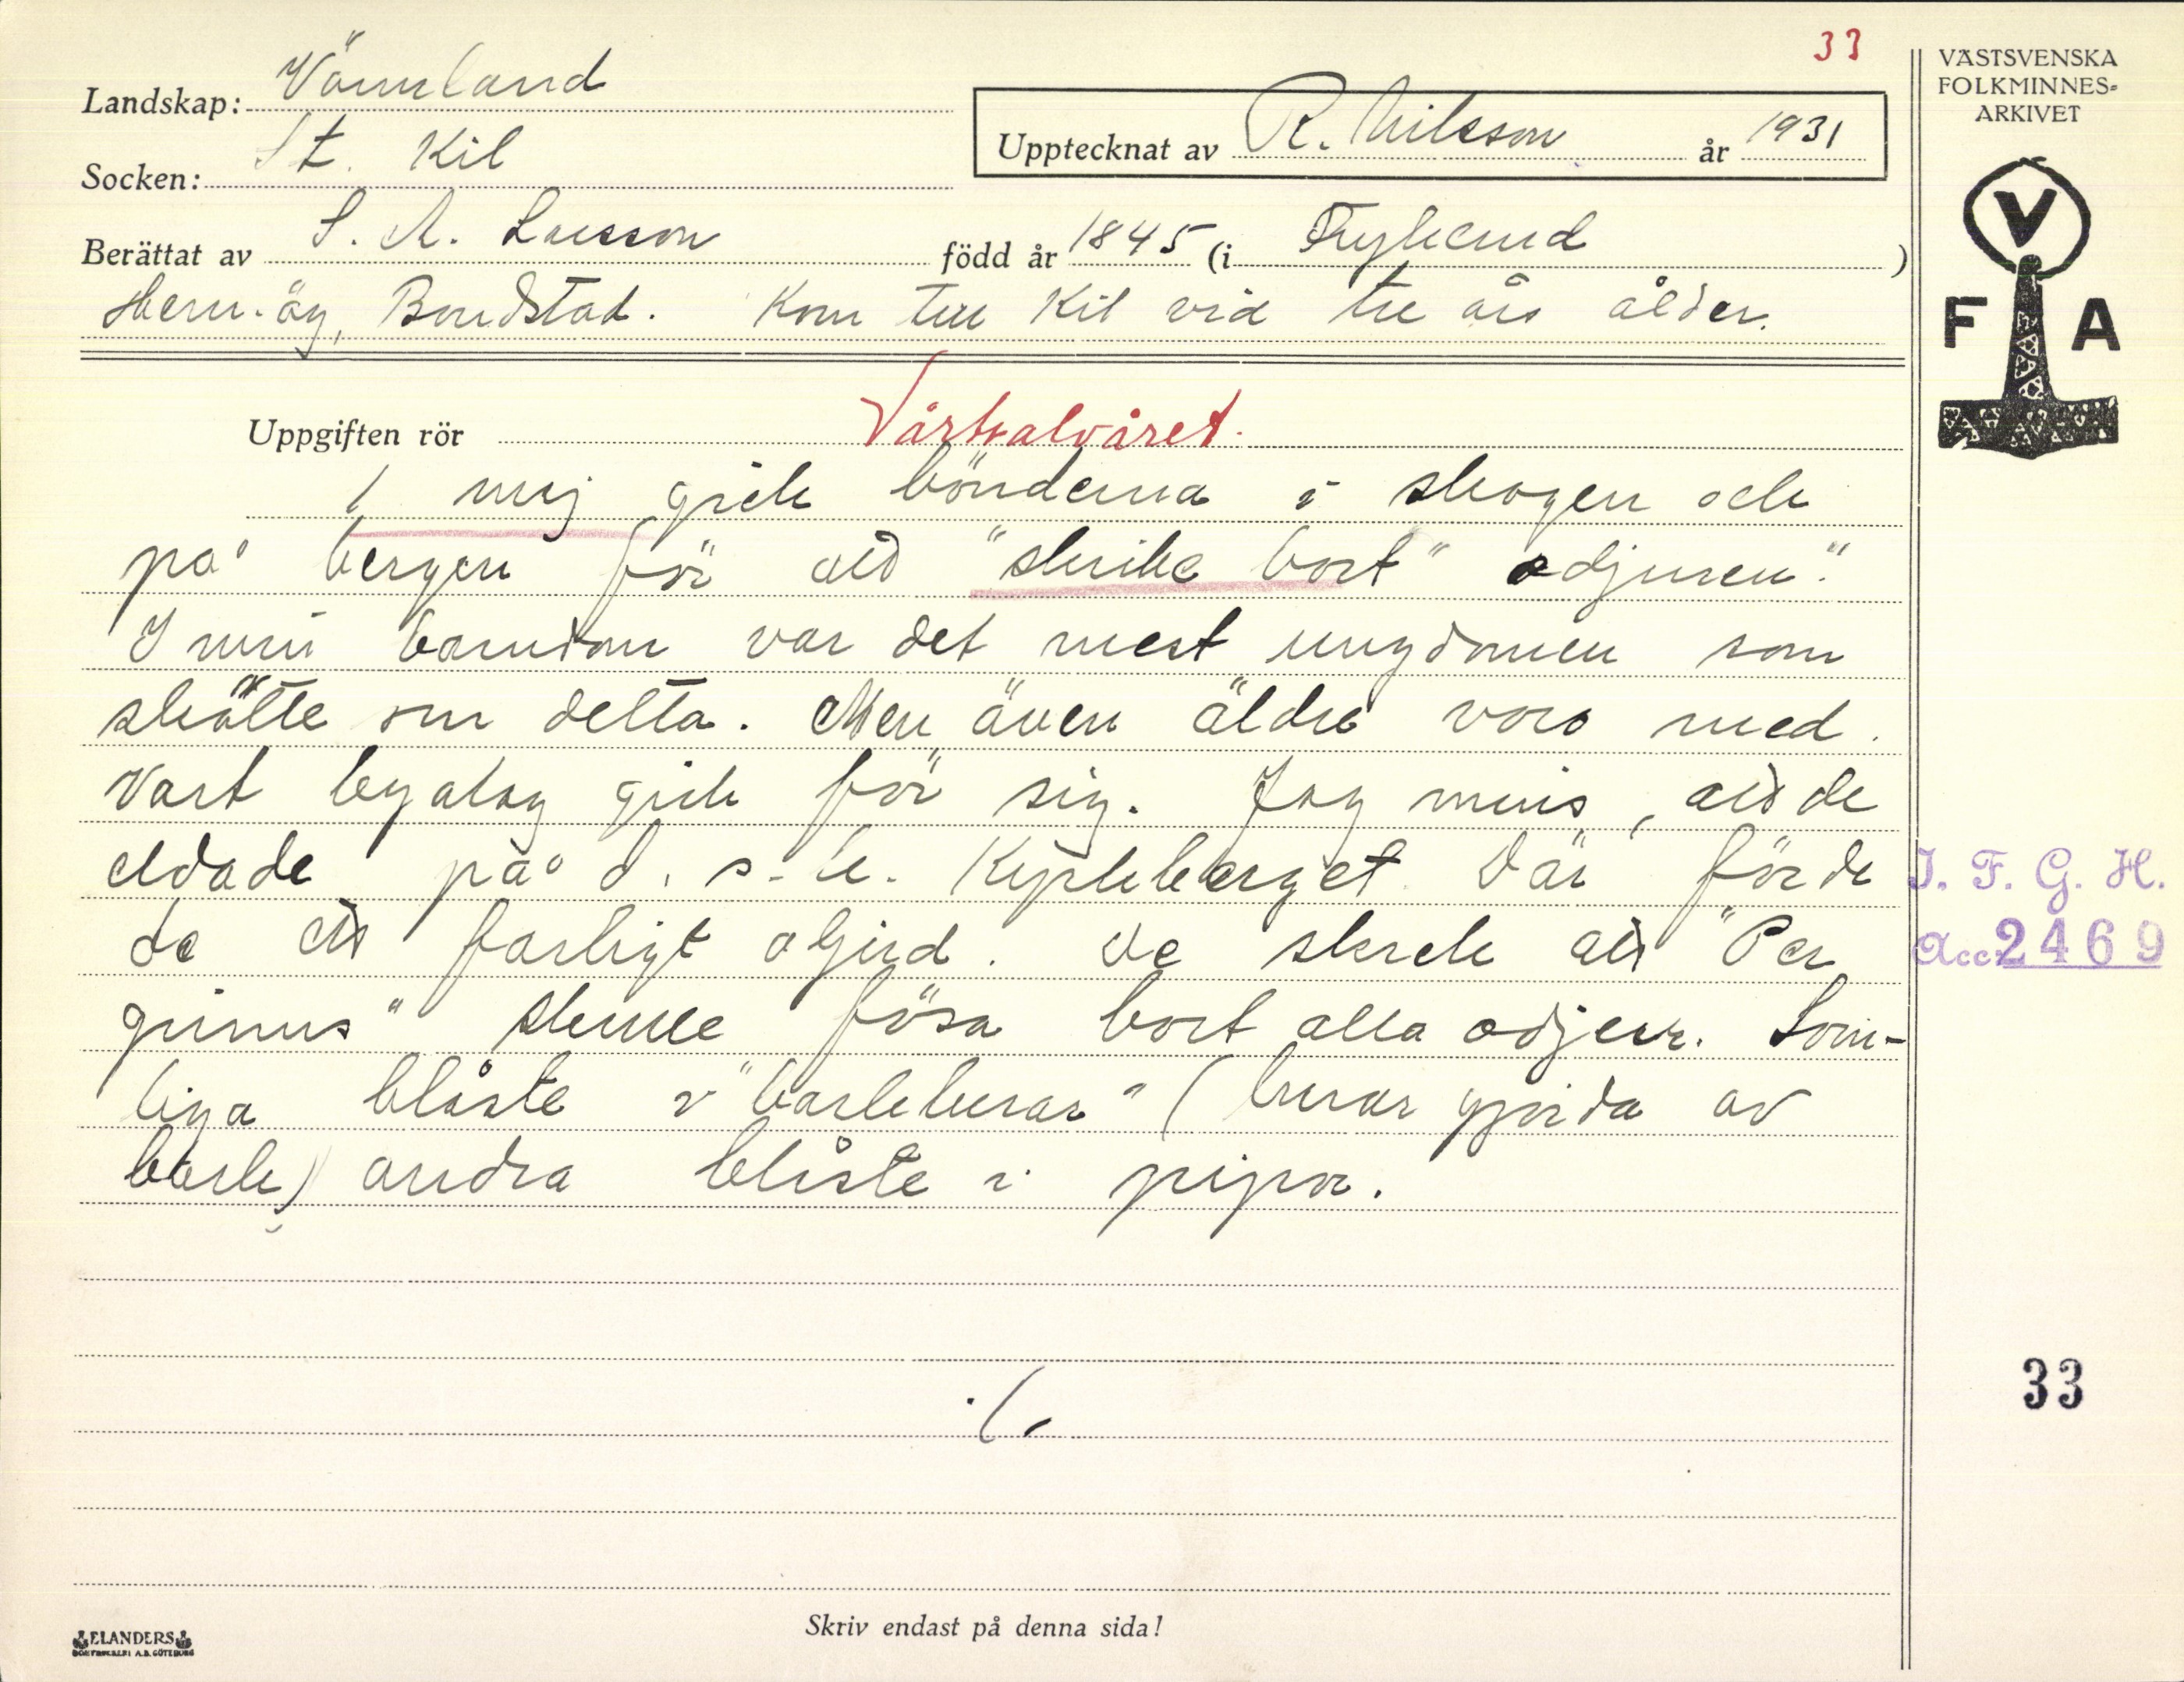 33
Landskap: Värmland
Socken: St. Kil
Upptecknat av R. Nilsson år 1931
Berättat av S. A. Larsson född år 1845 (i Frykerud)
Hem.äg, Bondstad. Kom till Kil vid tre års ålder.
Uppgiften rör Vårhalvåret.
I maj gick bönderna i skogen och
på bergen för att "skrike bort" odjuren."
I min barndom var det mest ungdomen som
skötte om detta. Men även äldre voro med.
Vart byalag gick för sig. Jag minns, att de
eldade på d. s. k. Kyrkberget. Där förde
de ett farligt oljud. De skrek att "Per
grinus" skulle fösa bort alla odjur. Som-
liga blåste i "barklurar" (lurar gjorda av
bark) andra blåste i pipor.
./.
Skriv endast på denna sida!
ELANDERS
BOKTRYCKERI A.B. GÖTEBORG
VÄSTSVENSKA
FOLKMINNES-
ARKIVET
V
F A
I. F. G. H.
Acc 2469
33